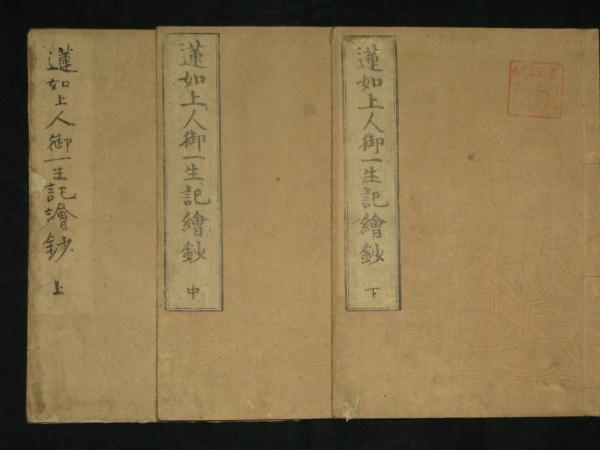 蓮如上人御一生記繪鈔 下
蓮如上人御一生記繪鈔 中
蓮如上人御一生記繪鈔 上